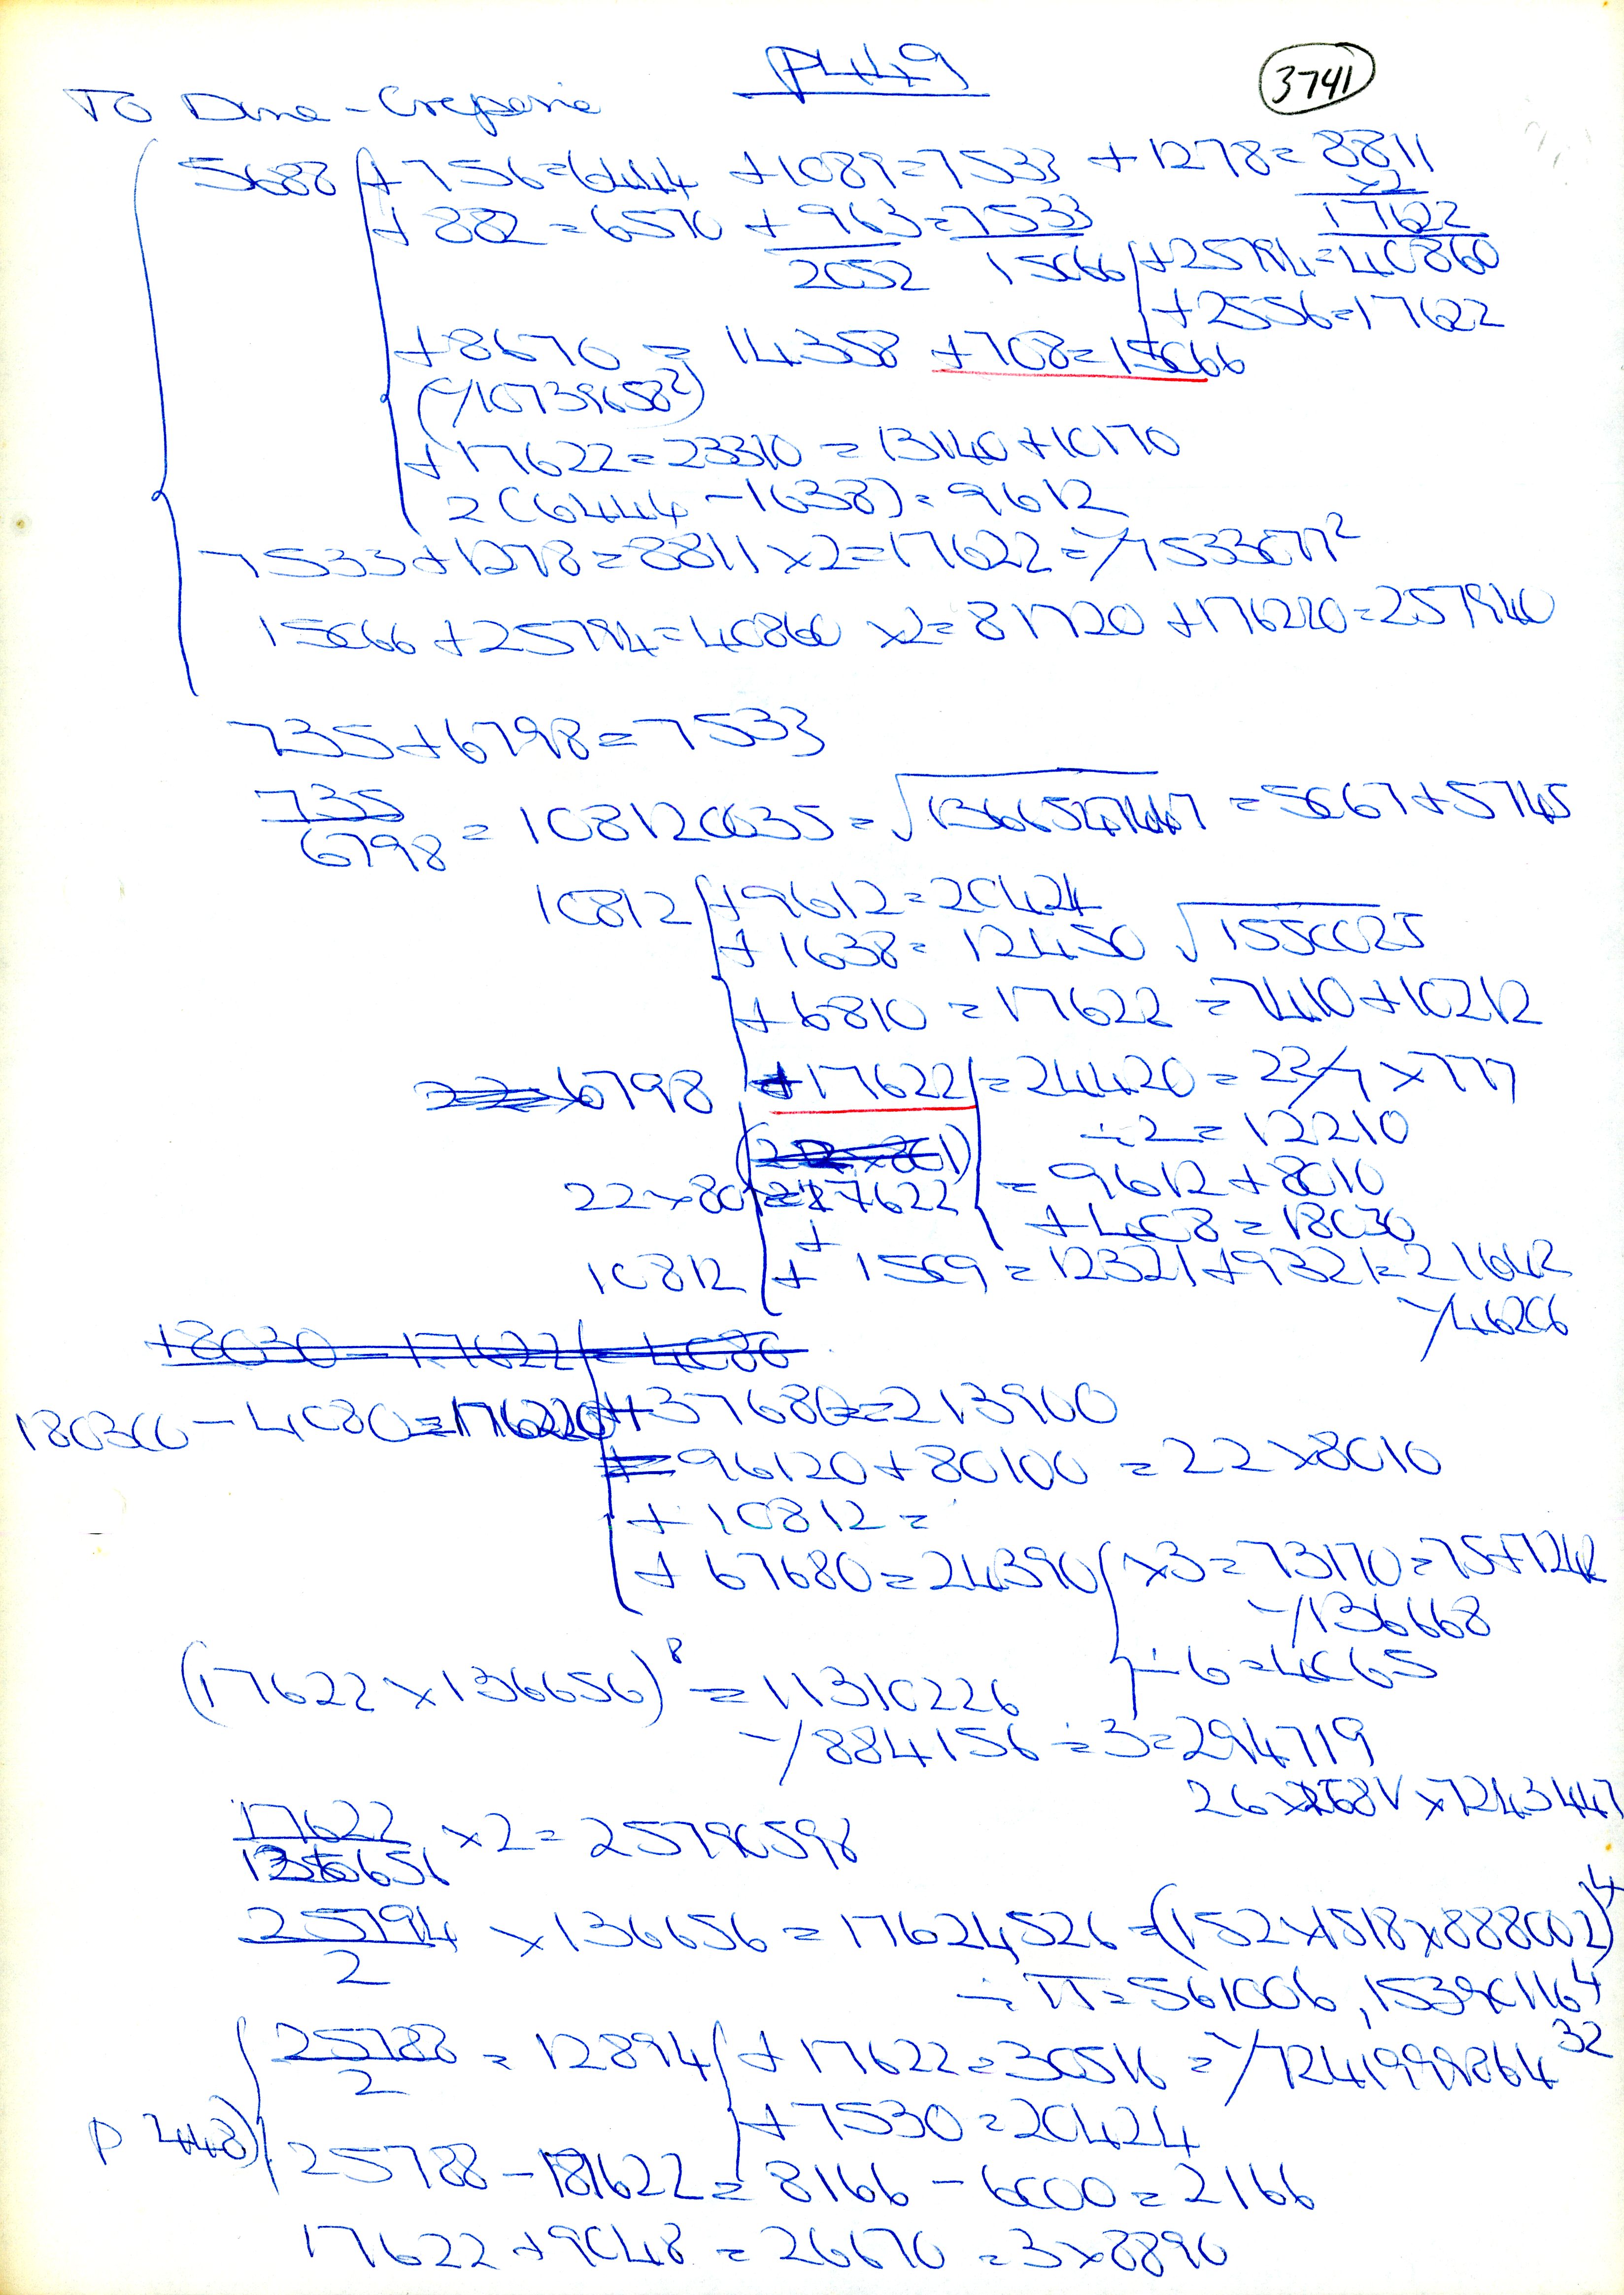 P449
3741
TO Dine - Creperie
5688 + 756 = 6444 + 1089 = 7533 + 1278 = 8811
x2
+ 882 = 6570 + 963 = 7533 17622
2052 15066 + 25794 = 40860
+ 2556 = 17622
+ 8670 = 14358 + 708 = 15066
(√10739658²)
+ 17622 = 23310 = 13140 + 10170
2(6444 - 1638) = 9612
7533 + 1278 = 8811 x 2 = 17622 =
15066 + 25794 = 40860 x2 = 81720 + 176220 = 257940
735 + 6798 = 7533
735
6798 = 108120035 = = 5067 + 5745
10812 + 9612 = 20424
+ 1638 = 12450 √1550025
+ 6810 = 17622 = 7410 + 10212
6798 + 17622 = 24420 = 22/7 x 777
÷ 2 = 12210
= 9612 + 8010
22 x 801 = 17622
+ 408 = 18030
+
10812 + 1509 = 12321 + 9321 = 21642
√46206
+8030 - 17622 = 4080
180300 - 4080 = 176220 + 37680 = 213900
= 96120 + 80100 = 22 x 8010
+ 10812 =
+ 67680 = 24390 x3 = 73170 =
√136668
÷ 6 = 4065
(17622 x 136656)⁸ = 11310226
√884156 ÷ 3 = 294719
17622
x 2 = 25790598
25794
2 x 136656 = 17624,526 = (152 x 1518 x 888002)⁴
÷ π = 561006,153901164
25788
2 = 12894 + 17622 = 30516 = √7241999864³²
+ 7530 = 20424
P 448) 25788 - 17622 = 8166 - 6000 = 2166
17622 + 9048 = 26670 = 3 x 8890